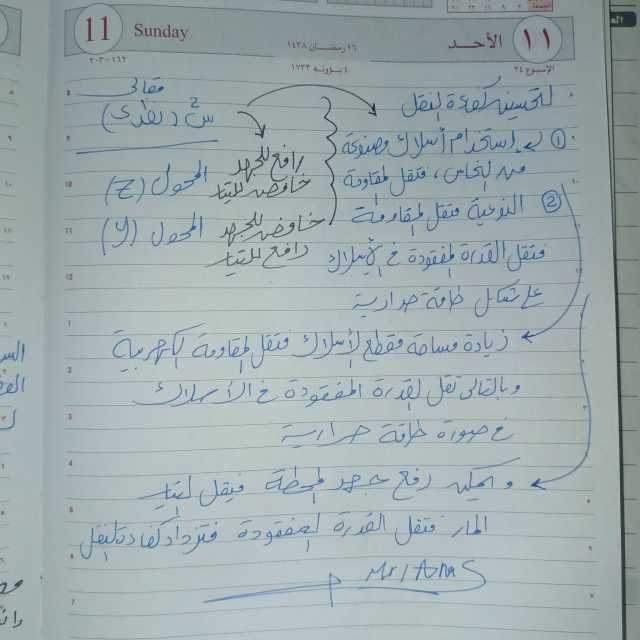 11 Sunday
الأحد ١١
١٦ رمضان ١٤٣٨
الإسبوع ٢٤
٤ بؤونه ١٧٣٣
مقالى
س٢ (نظرى)
رافع للجهد
خافض للتيار
المحول (Z)
خافض للجهد
رافع للتيار
المحول (y)
لتحسين كفاءة النقل
① استخدام أسلاك مصنوعة
من النحاس، فتقل المقاومة
② النوعية فتقل المقاومة
فتقل القدرة المفقودة فى الأسلاك
على شكل طاقة حرارية
زيادة مساحة مقطع الأسلاك فتقل المقاومة الكهربية
وبالتالى تقل القدرة المفقودة فى الأسلاك
فى صورة طاقة حرارية
ويمكن رفع جهد المحطة فيقل التيار
المار فتقل القدرة المفقودة فتزداد كفاءة النقل
Mr/